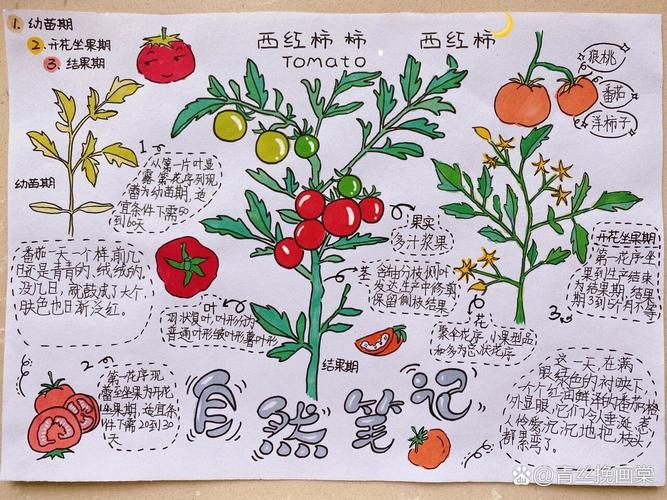 1. 幼苗期
2. 开花坐果期
3. 结果期
西红柿 柿
Tomato
西红柿
狼桃
番茄
洋柿子
幼苗期
1
从第一片叶显
露第一花序列现
蕾为幼苗期,适
宜条件下需50
到60天
番茄一天一个样,前几
日还是青青的,绒绒的,
没几日,就鼓成了大个,
肤色也日渐泛红。
叶
羽状复叶,叶形分为
普通叶形皱叶形薯叶形
果实
多汁浆果
茎
合轴分枝侧叶
发达生产中修剪
保留侧枝结果
花
聚伞花序,小果型品
种多为总状花序
开花坐果期
第一花序坐
果到生产结束
为结果期,结果
期3到5个月不等
3
2
第一花序现
蕾至坐果为开花
坐果期,适宜条
件下需20到30
天
结果期
自然笔记
这一天,在满
眼绿色的衬映下
一个个红润鲜泽的番茄格
外显眼,它们令人垂涎,老
人怜爱沉沉地把枝头
都累弯了。
青丝挽画棠